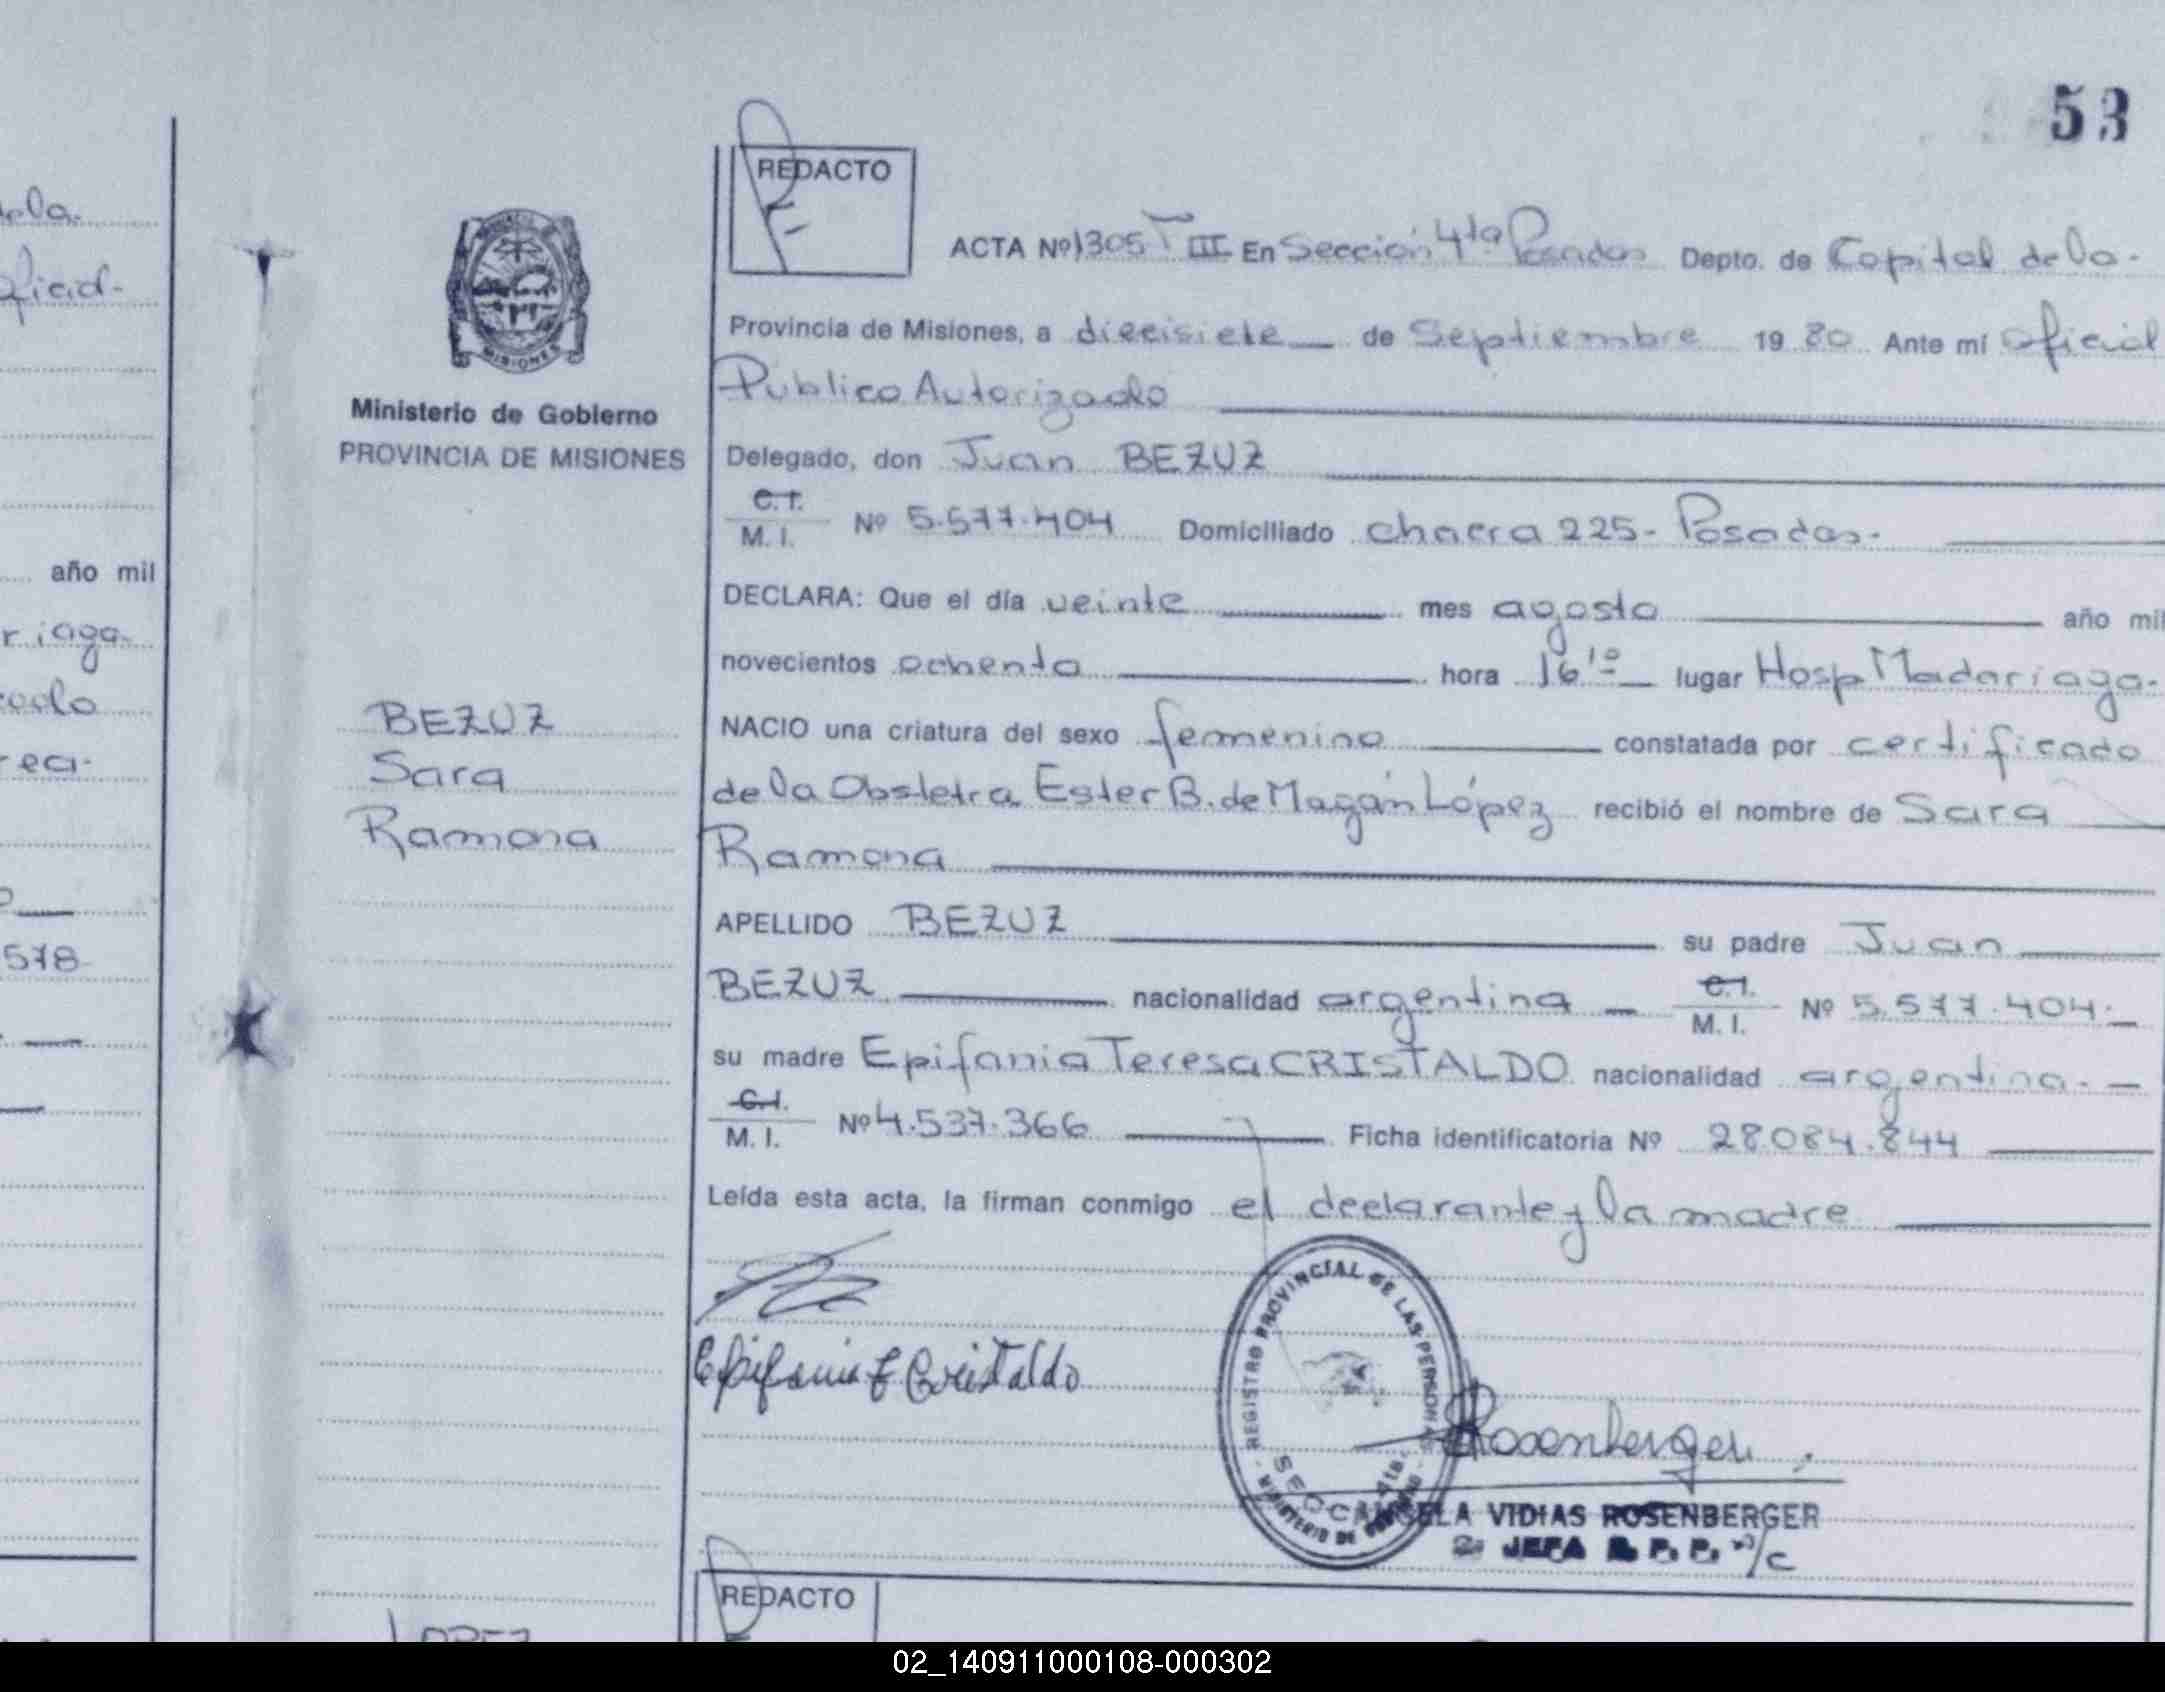 53
REDACTO
ela.
ACTA Nº 1305 T III En Sección 4ta Posadas Depto. de Capital de la.
oficial.
Provincia de Misiones, a diecisiete de Septiembre 19 80 Ante mí oficial
Público Autorizado
MISIONES
Ministerio de Gobierno
PROVINCIA DE MISIONES
Delegado, don Juan BEZUZ
C. I.
M. I. Nº 5.577.404 Domiciliado chacra 225- Posadas.
año mil
DECLARA: Que el día veinte mes agosto año mil
riaga.
novecientos ochenta hora 16'º lugar Hosp Madariaga.
BEZUZ
Sara
Ramona
NACIO una criatura del sexo femenino constatada por certificado
de la Obstetra Ester B. de Magán López recibió el nombre de Sara
Ramona
APELLIDO BEZUZ su padre Juan
578
BEZUZ nacionalidad argentina C. I. M. I. Nº 5.577.404.
su madre Epifania Teresa CRISTALDO nacionalidad argentina.
C. I.
M. I. Nº 4.537.366 Ficha identificatoria Nº 28.084.844
Leída esta acta, la firman conmigo el declarante y la madre
Epifania T Cristaldo
REGISTRO PROVINCIAL DE LAS PERSONAS
MINISTERIO DE GOBIERNO
SECC. 4ta.
Rosenberger
ANGELA VIDIAS ROSENBERGER
2º JEFA R. P. P. a/c
REDACTO
LOPEZ
02_140911000108-000302